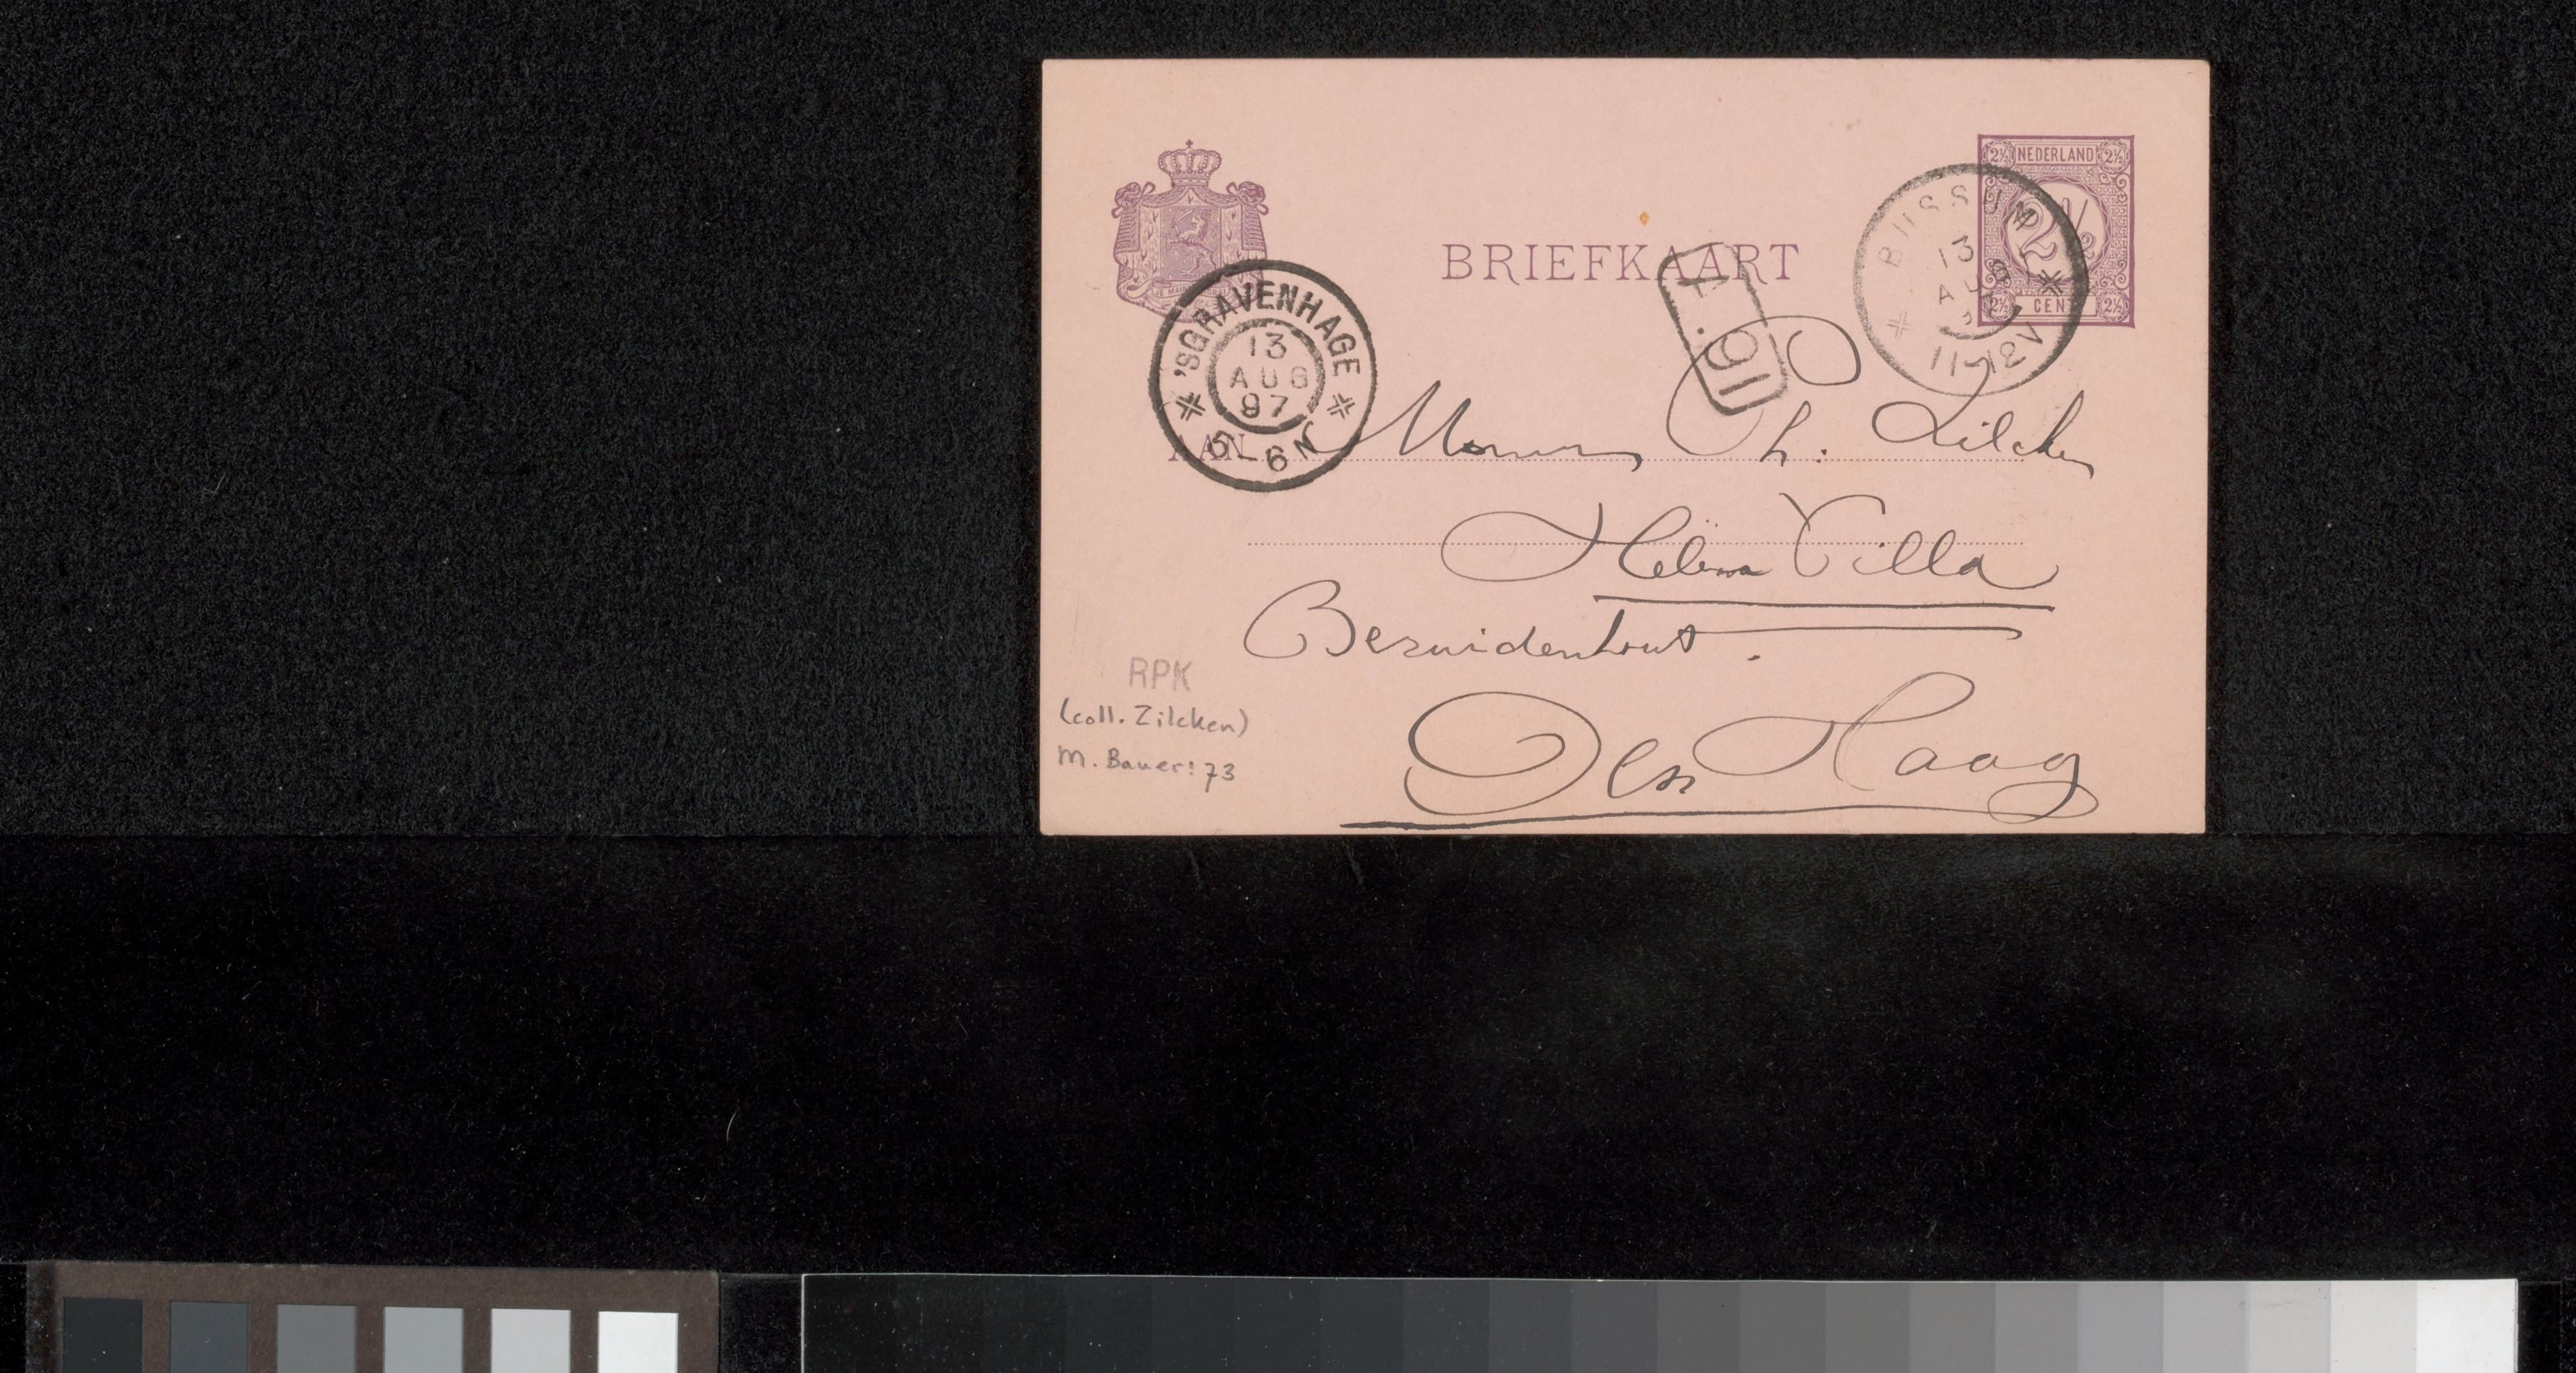 2½ NEDERLAND 2½
2½
2½ CENT 2½
BUSSUM
13
AUG
11-12V
BRIEFKAART
'SGRAVENHAGE
13
AUG
97
5-6N
AAN Ph: Zilcken
Helena Villa
Bezuidenhout.
Den Haag
RPK
(coll. Zilcken)
M. Bauer: 73